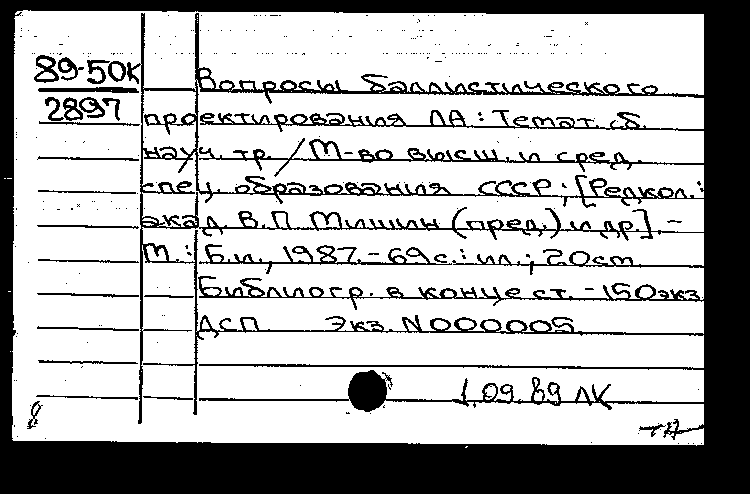 89-50К
2897
Вопросы баллистического
проектирования ЛА: Темат. сб.
науч. тр. / М-во высш. и сред.
спец. образования СССР; [Редкол.:
акад. В.П. Мишин (пред.) и др.]. -
М.: Б.и., 1987. - 69 с.: ил.; 20 см.
Библиогр. в конце ст. - 150 экз.
ДСП Экз. N000005.
1.09.89 ЛК
8